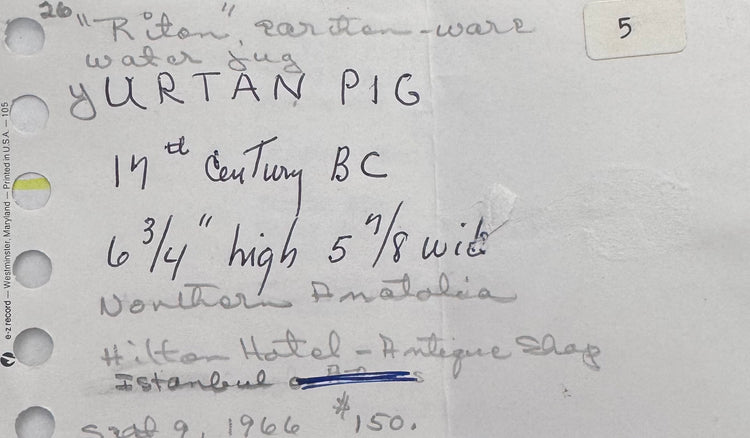 26
"Riton", earthen-ware
water jug
5
yURTAN PIG
17th Century BC
6 3/4" high 5 7/8 wide
Northern Anatolia
Hilton Hotel - Antique Shop
Istanbul
Sept 9, 1966 $150.
e-z record — Westminster, Maryland — Printed in U.S.A. — 105